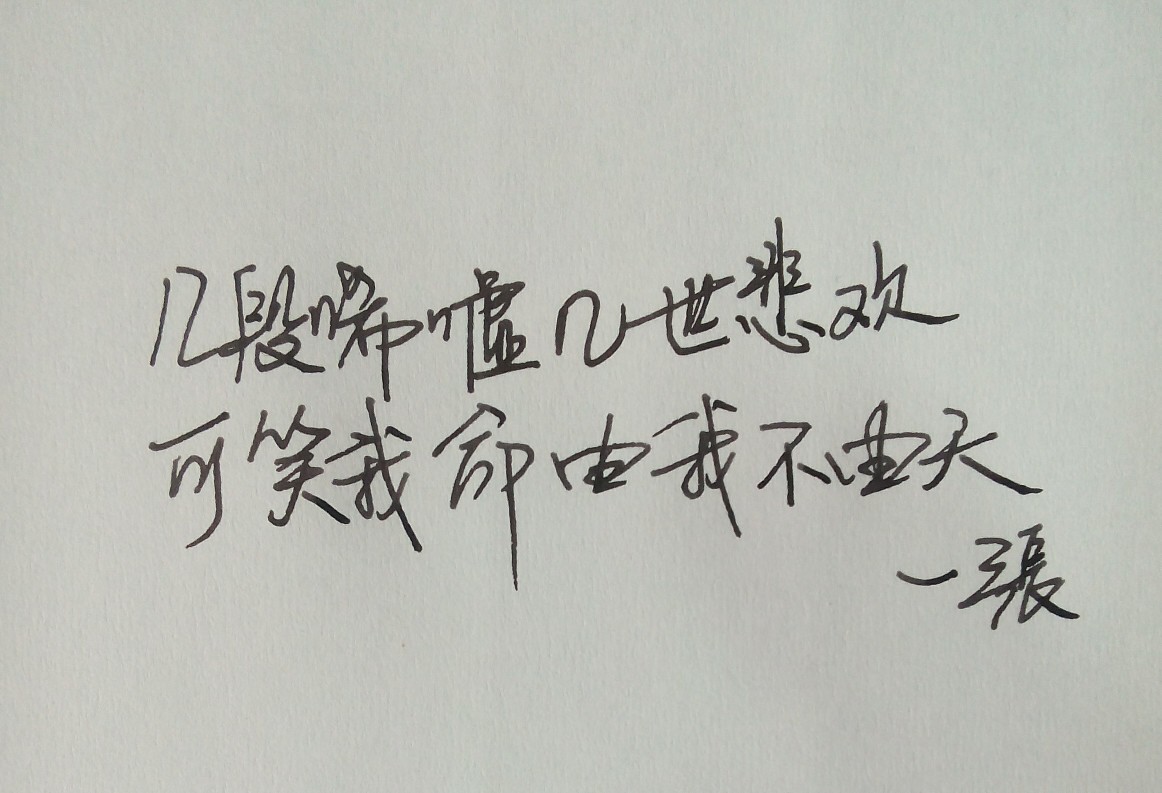 几段唏嘘几世悲欢
可笑我命由我不由天
一張